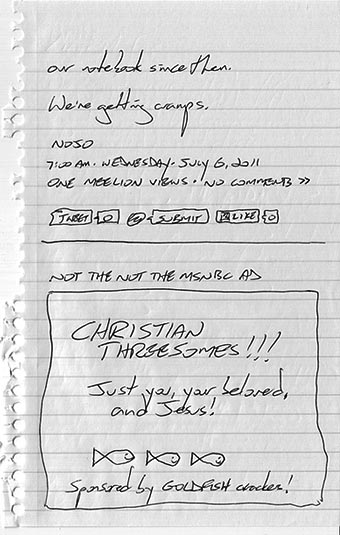 our notebook since then.
We're getting cramps.
NOJO
7:00 AM · WEDNESDAY · JULY 6, 2011
ONE MEELION VIEWS · NO COMMENTS >>
TWEET 0 SUBMIT LIKE 0
NOT THE NOT THE MSNBC AD
CHRISTIAN
THREESOMES!!!
Just you, your beloved,
and Jesus!
Sponsored by GOLDFISH crackers!